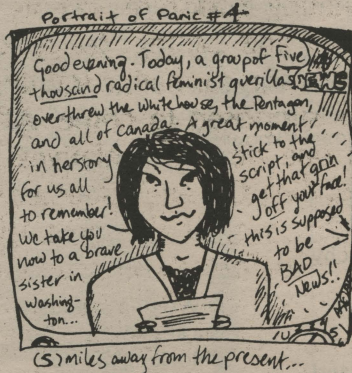 Portrait of Panic #4
Good evening. Today, a group of five
thousand radical feminist guerillas
NEWS
overthrew the White house, the Pentagon,
and all of Canada. A great moment
in herstory
for us all
to remember!
We take you
now to a brave
sister in
Washing-
ton...
Stick to the
script, and
get that grin
off your face!
this is supposed
to be
BAD
News!!
(5) miles away from the present...